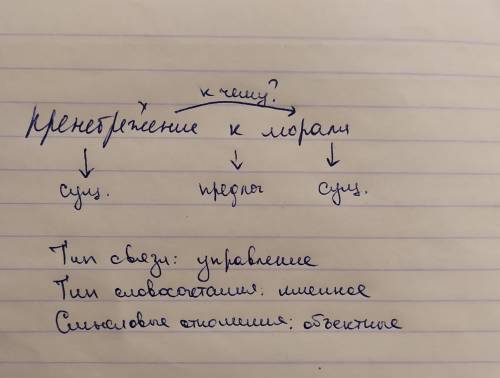 к чему?
пренебрежение к морали
сущ. предлог сущ.
Тип связи: управление
Тип словосочетания: именное
Смысловые отношения: объектные